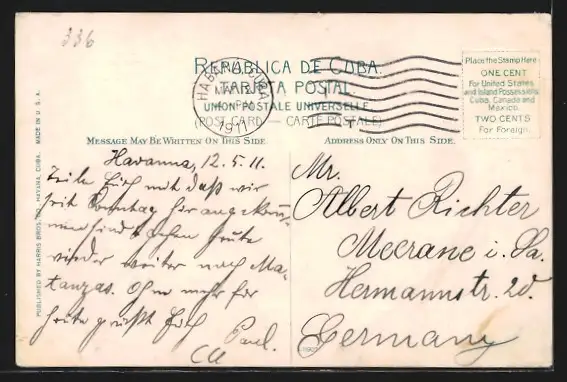 336
REPÚBLICA DE CUBA.
TARJETA POSTAL.
UNION POSTALE UNIVERSELLE.
(POST CARD — CARTE POSTALE)
HABANA CUBA
1911
Place the Stamp Here
ONE CENT
For United States
and Island Possessions,
Cuba, Canada and
Mexico.
TWO CENTS
For Foreign.
MESSAGE MAY BE WRITTEN ON THIS SIDE.
ADDRESS ONLY ON THIS SIDE.
PUBLISHED BY HARRIS BROS. CO., HAVANA, CUBA. MADE IN U. S. A.
Havanna, 12. 5. 11.
Teile Euch mit daß wir
seit Sonntag hier angekom-
men sind & gehen heute
wieder weiter nach Ma-
tanzas. Ohne mehr für
heute grüßt Euch
Paul.
Mr.
Albert Richter
Meerane i. Sa.
Hermannstr. 20.
Germany